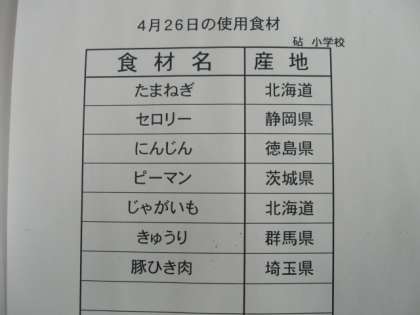 4月26日の使用食材
砧 小学校
食材名 産地
たまねぎ 北海道
セロリー 静岡県
にんじん 徳島県
ピーマン 茨城県
じゃがいも 北海道
きゅうり 群馬県
豚ひき肉 埼玉県